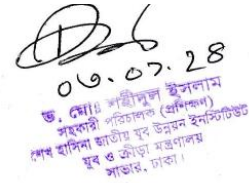 ০৩.০১.২৪
ড. মোঃ শহীদুল ইসলাম
সহকারী পরিচালক (প্রশিক্ষণ)
শেখ হাসিনা জাতীয় যুব উন্নয়ন ইনস্টিটিউট
যুব ও ক্রীড়া মন্ত্রণালয়
সাভার, ঢাকা।